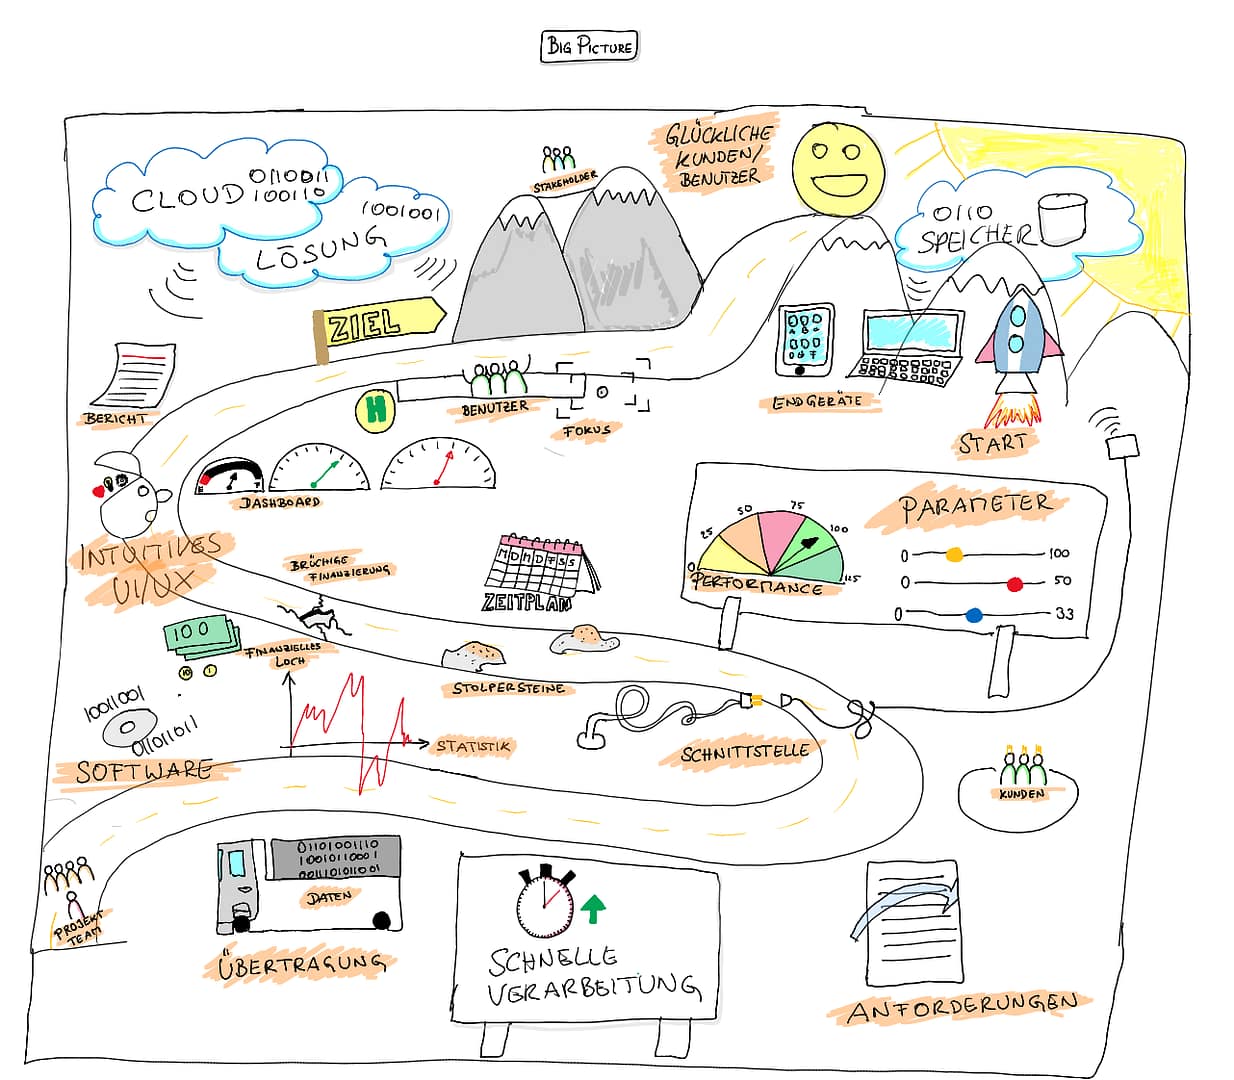 BIG PICTURE
CLOUD
0110011
100110
1001001
LÖSUNG
STAKEHOLDER
GLÜCKLICHE
KUNDEN/
BENUTZER
0110
SPEICHER
ZIEL
BERICHT
H
BENUTZER
FOKUS
ENDGERÄTE
START
E F
DASHBOARD
INTUITIVES
UI/UX
BRÜCHIGE
FINANZIERUNG
M D M D F S S
ZEITPLAN
0 25 50 75 100 125
PERFORMANCE
PARAMETER
0 100
0 50
0 33
100
10 1
FINANZIELLES
LOCH
STOLPERSTEINE
10011001
011011011
SOFTWARE
STATISTIK
SCHNITTSTELLE
KUNDEN
PROJEKT
TEAM
01101001110
10010110001
00111010110 01
DATEN
ÜBERTRAGUNG
SCHNELLE
VERARBEITUNG
ANFORDERUNGEN